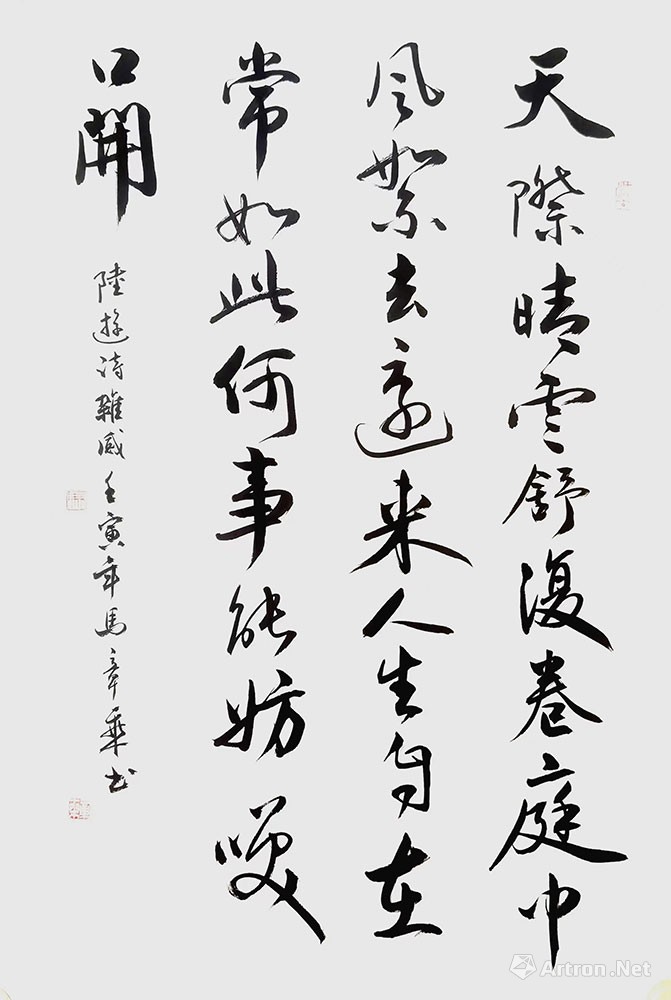 天際晴雲舒復卷庭中
風絮去還来人生自在
常如此何事能妨笑
口開
陸游诗雜感壬寅年馬章乘书
Artron.Net